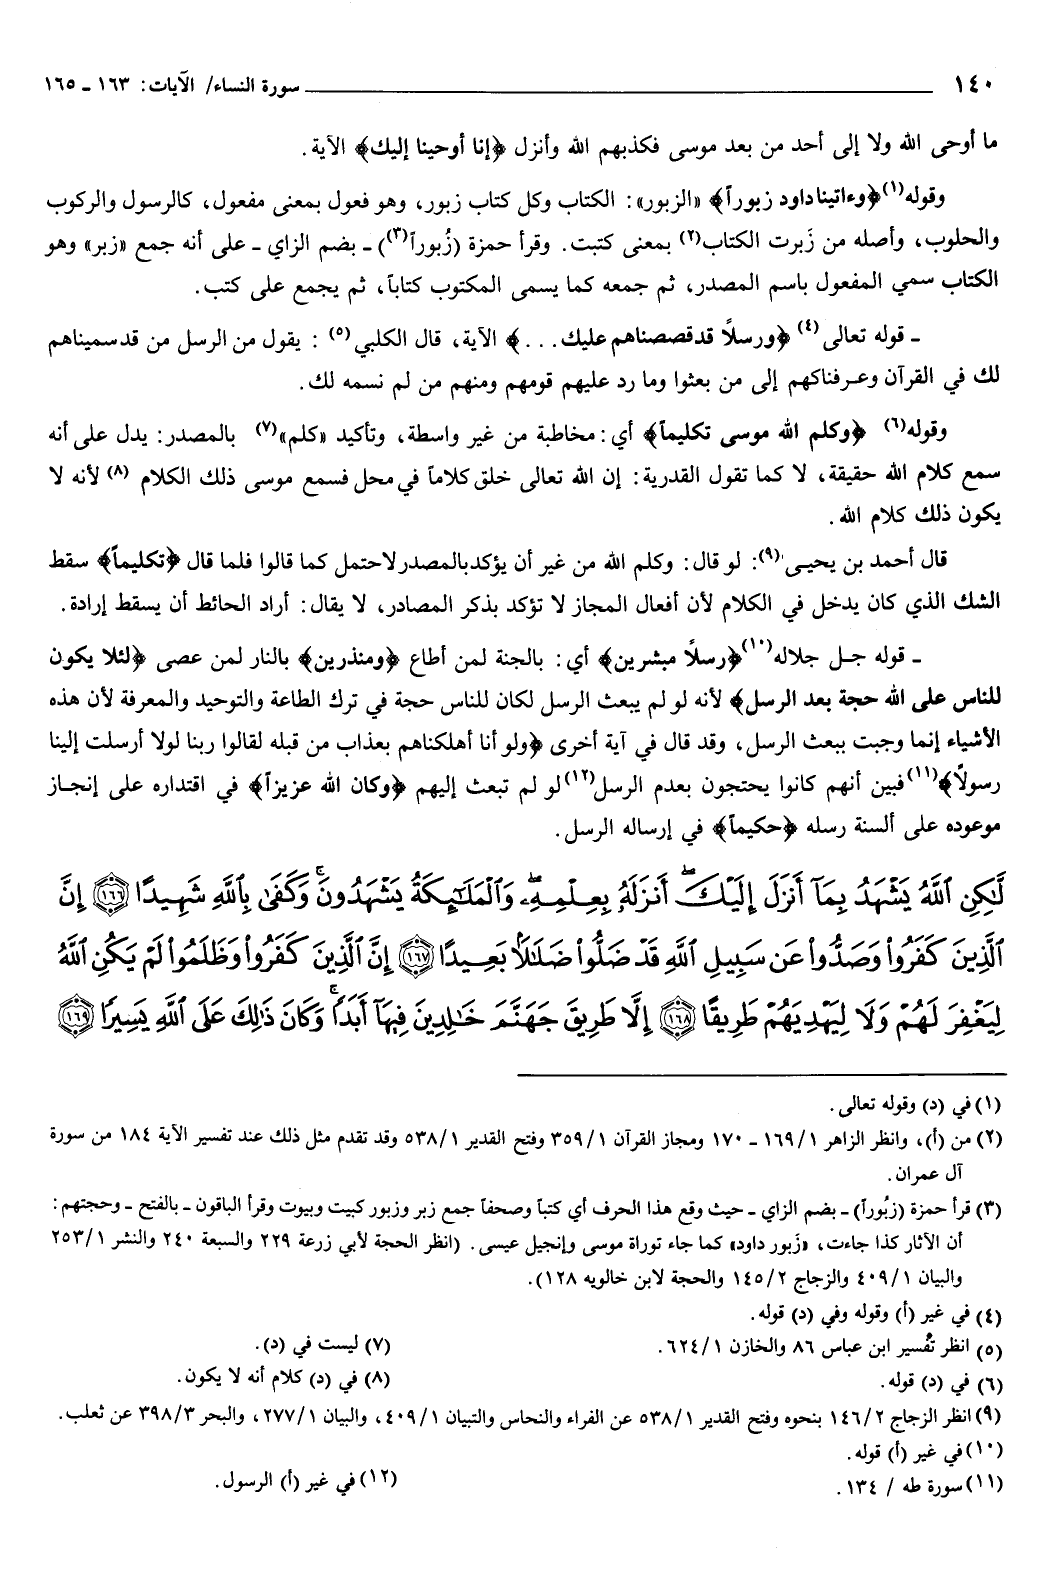 ١٤٠ سورة النساء/ الآيات: ١٦٣ ـ ١٦٥
ما أوحى الله ولا إلى أحد من بعد موسى فكذبهم الله وأنزل ﴿إنا أوحينا إليك﴾ الآية.
وقوله(١) ﴿وءاتينا داود زبوراً﴾ «الزبور»: الكتاب وكل كتاب زبور، وهو فعول بمعنى مفعول، كالرسول والركوب
والحلوب، وأصله من زَبرت الكتاب(٢) بمعنى كتبت. وقرأ حمزة (زُبوراً(٣)) ـ بضم الزاي ـ على أنه جمع «زبر» وهو
الكتاب سمي المفعول باسم المصدر، ثم جمعه كما يسمى المكتوب كتاباً، ثم يجمع على كتب.
ـ قوله تعالى(٤) ﴿ورسلاً قد قصصناهم عليك. . .﴾ الآية، قال الكلبي(٥) : يقول من الرسل من قد سميناهم
لك في القرآن وعرفناكهم إلى من بعثوا وما رد عليهم قومهم ومنهم من لم نسمه لك.
وقوله(٦) ﴿وكلم الله موسى تكليماً﴾ أي: مخاطبة من غير واسطة، وتأكيد «كلم»(٧) بالمصدر: يدل على أنه
سمع كلام الله حقيقة، لا كما تقول القدرية: إن الله تعالى خلق كلاماً في محل فسمع موسى ذلك الكلام (٨) لأنه لا
يكون ذلك كلام الله.
قال أحمد بن يحيى(٩): لو قال: وكلم الله من غير أن يؤكد بالمصدر لاحتمل كما قالوا فلما قال ﴿تكليماً﴾ سقط
الشك الذي كان يدخل في الكلام لأن أفعال المجاز لا تؤكد بذكر المصادر، لا يقال: أراد الحائط أن يسقط إرادة.
ـ قوله جل جلاله(١٠) ﴿رسلاً مبشرين﴾ أي: بالجنة لمن أطاع ﴿ومنذرين﴾ بالنار لمن عصى ﴿لئلا يكون
للناس على الله حجة بعد الرسل﴾ لأنه لو لم يبعث الرسل لكان للناس حجة في ترك الطاعة والتوحيد والمعرفة لأن هذه
الأشياء إنما وجبت ببعث الرسل، وقد قال في آية أخرى ﴿ولو أنا أهلكناهم بعذاب من قبله لقالوا ربنا لولا أرسلت إلينا
رسولاً﴾(١١) فبين أنهم كانوا يحتجون بعدم الرسل(١٢) لو لم تبعث إليهم ﴿وكان الله عزيزاً﴾ في اقتداره على إنجاز
موعوده على ألسنة رسله ﴿حكيماً﴾ في إرساله الرسل.
لَّٰكِنِ ٱللَّهُ يَشْهَدُ بِمَآ أَنزَلَ إِلَيْكَ ۖ أَنزَلَهُۥ بِعِلْمِهِۦ ۖ وَٱلْمَلَٰٓئِكَةُ يَشْهَدُونَ ۚ وَكَفَىٰ بِٱللَّهِ شَهِيدًا ١٦٦ إِنَّ
ٱلَّذِينَ كَفَرُوا۟ وَصَدُّوا۟ عَن سَبِيلِ ٱللَّهِ قَدْ ضَلُّوا۟ ضَلَٰلًۢا بَعِيدًا ١٦٧ إِنَّ ٱلَّذِينَ كَفَرُوا۟ وَظَلَمُوا۟ لَمْ يَكُنِ ٱللَّهُ
لِيَغْفِرَ لَهُمْ وَلَا لِيَهْدِيَهُمْ طَرِيقًا ١٦٨ إِلَّا طَرِيقَ جَهَنَّمَ خَٰلِدِينَ فِيهَآ أَبَدًا ۚ وَكَانَ ذَٰلِكَ عَلَى ٱللَّهِ يَسِيرًا ١٦٩
(١) في (د) وقوله تعالى.
(٢) من (أ)، وانظر الزاهر ١/ ١٦٩ ـ ١٧٠ ومجاز القرآن ١/ ٣٥٩ وفتح القدير ١/ ٥٣٨ وقد تقدم مثل ذلك عند تفسير الآية ١٨٤ من سورة
آل عمران.
(٣) قرأ حمزة (زبُوراً) ـ بضم الزاي ـ حيث وقع هذا الحرف أي كتباً وصحفاً جمع زبر وزبور كبيت وبيوت وقرأ الباقون ـ بالفتح ـ وحجتهم:
أن الآثار كذا جاءت، «زَبور داود» كما جاء توراة موسى وإنجيل عيسى. (انظر الحجة لأبي زرعة ٢٢٩ والسبعة ٢٤٠ والنشر ١/ ٢٥٣
والبيان ١/ ٤٠٩ والزجاج ٢/ ١٤٥ والحجة لابن خالويه ١٢٨).
(٤) في غير (أ) وقوله وفي (د) قوله.
(٥) انظر تفسير ابن عباس ٨٦ والخازن ١/ ٦٢٤. (٧) ليست في (د).
(٦) في (د) قوله. (٨) في (د) كلام أنه لا يكون.
(٩) انظر الزجاج ٢/ ١٤٦ بنحوه وفتح القدير ١/ ٥٣٨ عن الفراء والنحاس والتبيان ١/ ٤٠٩، والبيان ١/ ٢٧٧، والبحر ٣/ ٣٩٨ عن ثعلب.
(١٠) في غير (أ) قوله.
(١١) سورة طه / ١٣٤. (١٢) في غير (أ) الرسول.